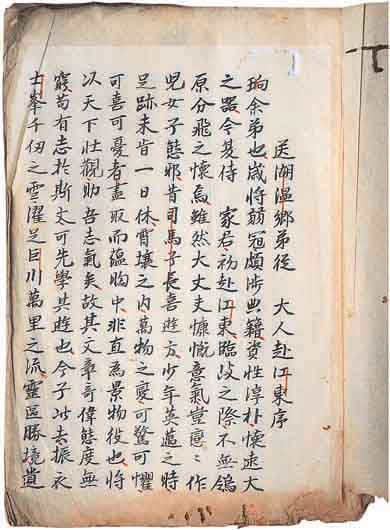 送湖温鄉弟從　大人赴江東序
珦余弟也歲将弱冠頗涉典籍資性淳朴懷遠大
之器今夏侍　家君初赴江東臨歧之際不無鴒
原分飛之懷焉雖然大丈夫慷慨意氣豈戀〻作
兒女子態邪昔司馬子長喜遊方少年英邁之時
足跡未肯一日休霄壤之内萬物之變可驚可懼
可喜可憂者盡取而蘊胸中非直為景物役也将
以天下壮觀助吾志氣矣故其文章奇偉態度無
窮苟有志於斯文可先學其遊也今子此去振衣
士峯千仞之雲濯足巨川萬里之流靈區勝境遺